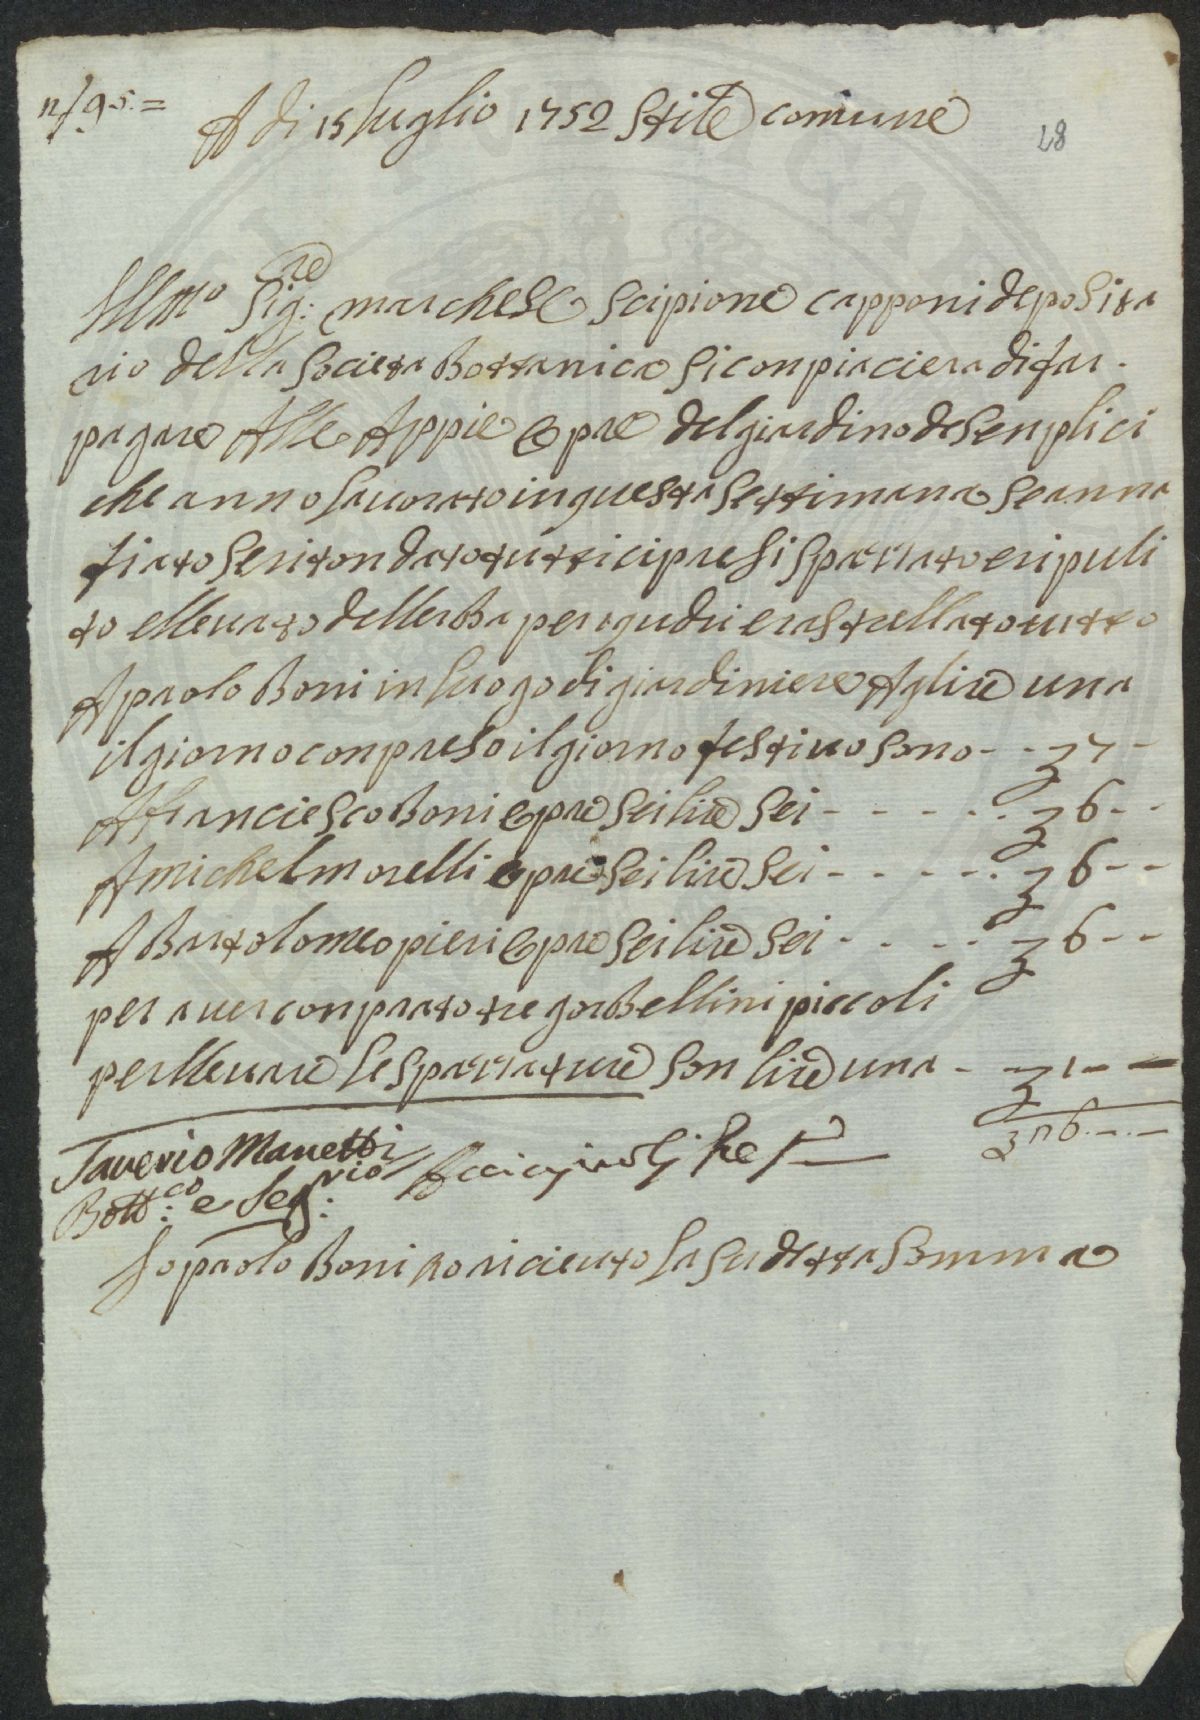 n/ 95.=
A di 15 luglio 1752 Stile comune
28
Illmo Sig:re marchese Scipione capponi deposita
rio della Societa Bottanica Si conpiaciera di far
pagare Alle Appie Opre del giardino de Senplici
che anno lavorato in questa Settimana Se anna
fiato Se ritondato tutti i cipresi Spazzato e ripuli
to e llevato dell erba per i quadri e rastrellato tutto
A paolo Boni in luogo di giardiniere A lire una
il giorno conpreso il giorno festivo Sono - - 7 -
A franciesco Boni Opre Sei lire Sei - - - - - 6 - -
A michel morelli Opre Sei lire Sei - - - - - 6 - -
A Bartolomeo pieri Opre Sei lire Sei - - - - 6 - -
per aver conprato tre gorbellini piccoli
per llevare le Spazzature Son lire una - 1 - -
26.-.-
Saverio Manetti
Bott:co e Seg:rio
Io paolo Boni ho riceuto la Su detta Somma